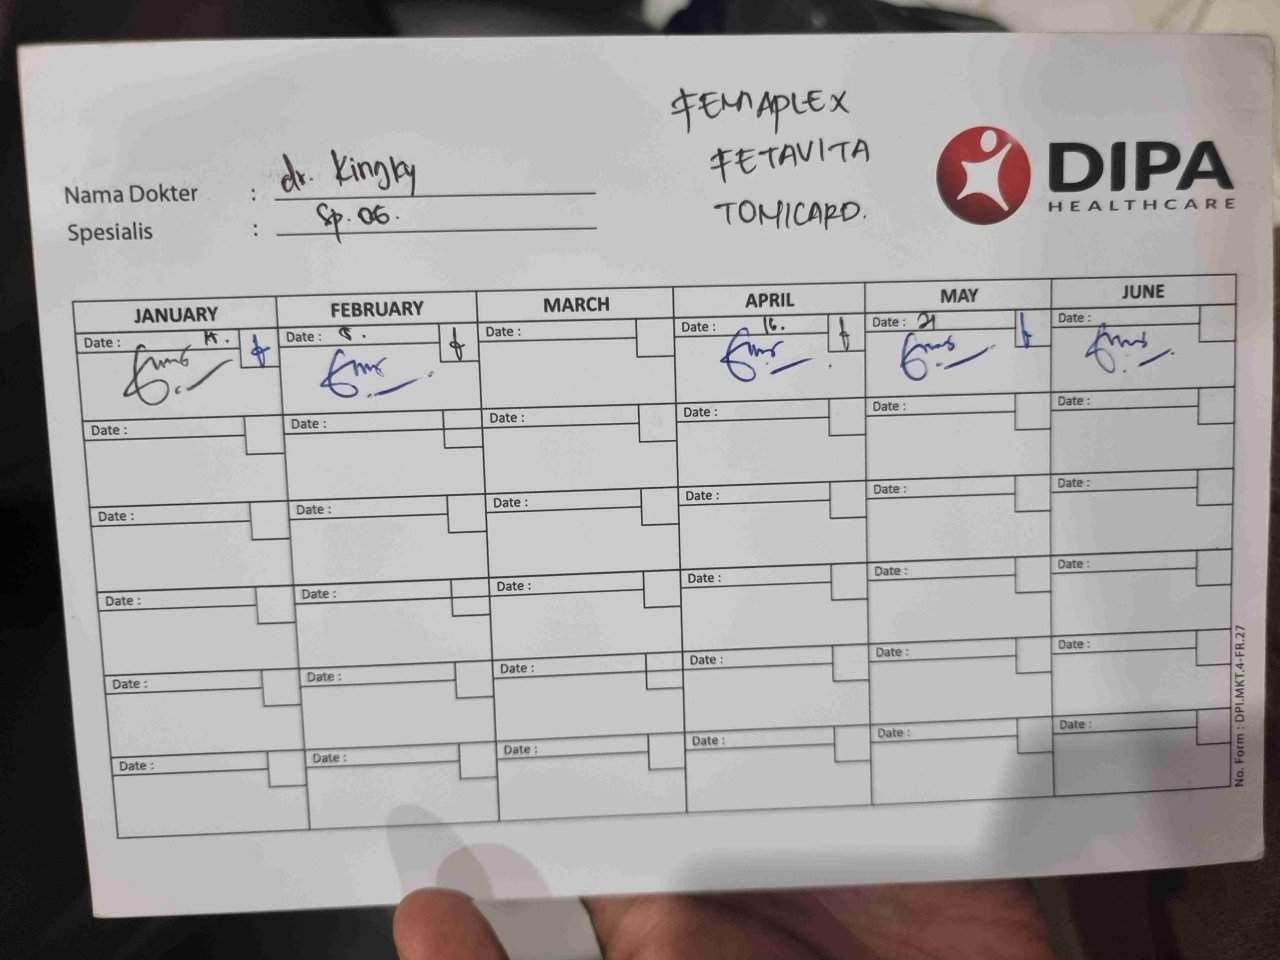 FEMAPLEX
FETAVITA
TOMICARD.
DIPA
HEALTHCARE
Nama Dokter : dr. Kingky
Spesialis : Sp. OG.
JANUARY FEBRUARY MARCH APRIL MAY JUNE
Date : Date : 8. Date : Date : 16. Date : 21 Date :
Date : Date : Date : Date : Date : Date :
Date : Date : Date : Date : Date : Date :
Date : Date : Date : Date : Date : Date :
Date : Date : Date : Date : Date : Date :
Date : Date : Date : Date : Date : Date :
No. Form : DPI.MKT.4-FR.27